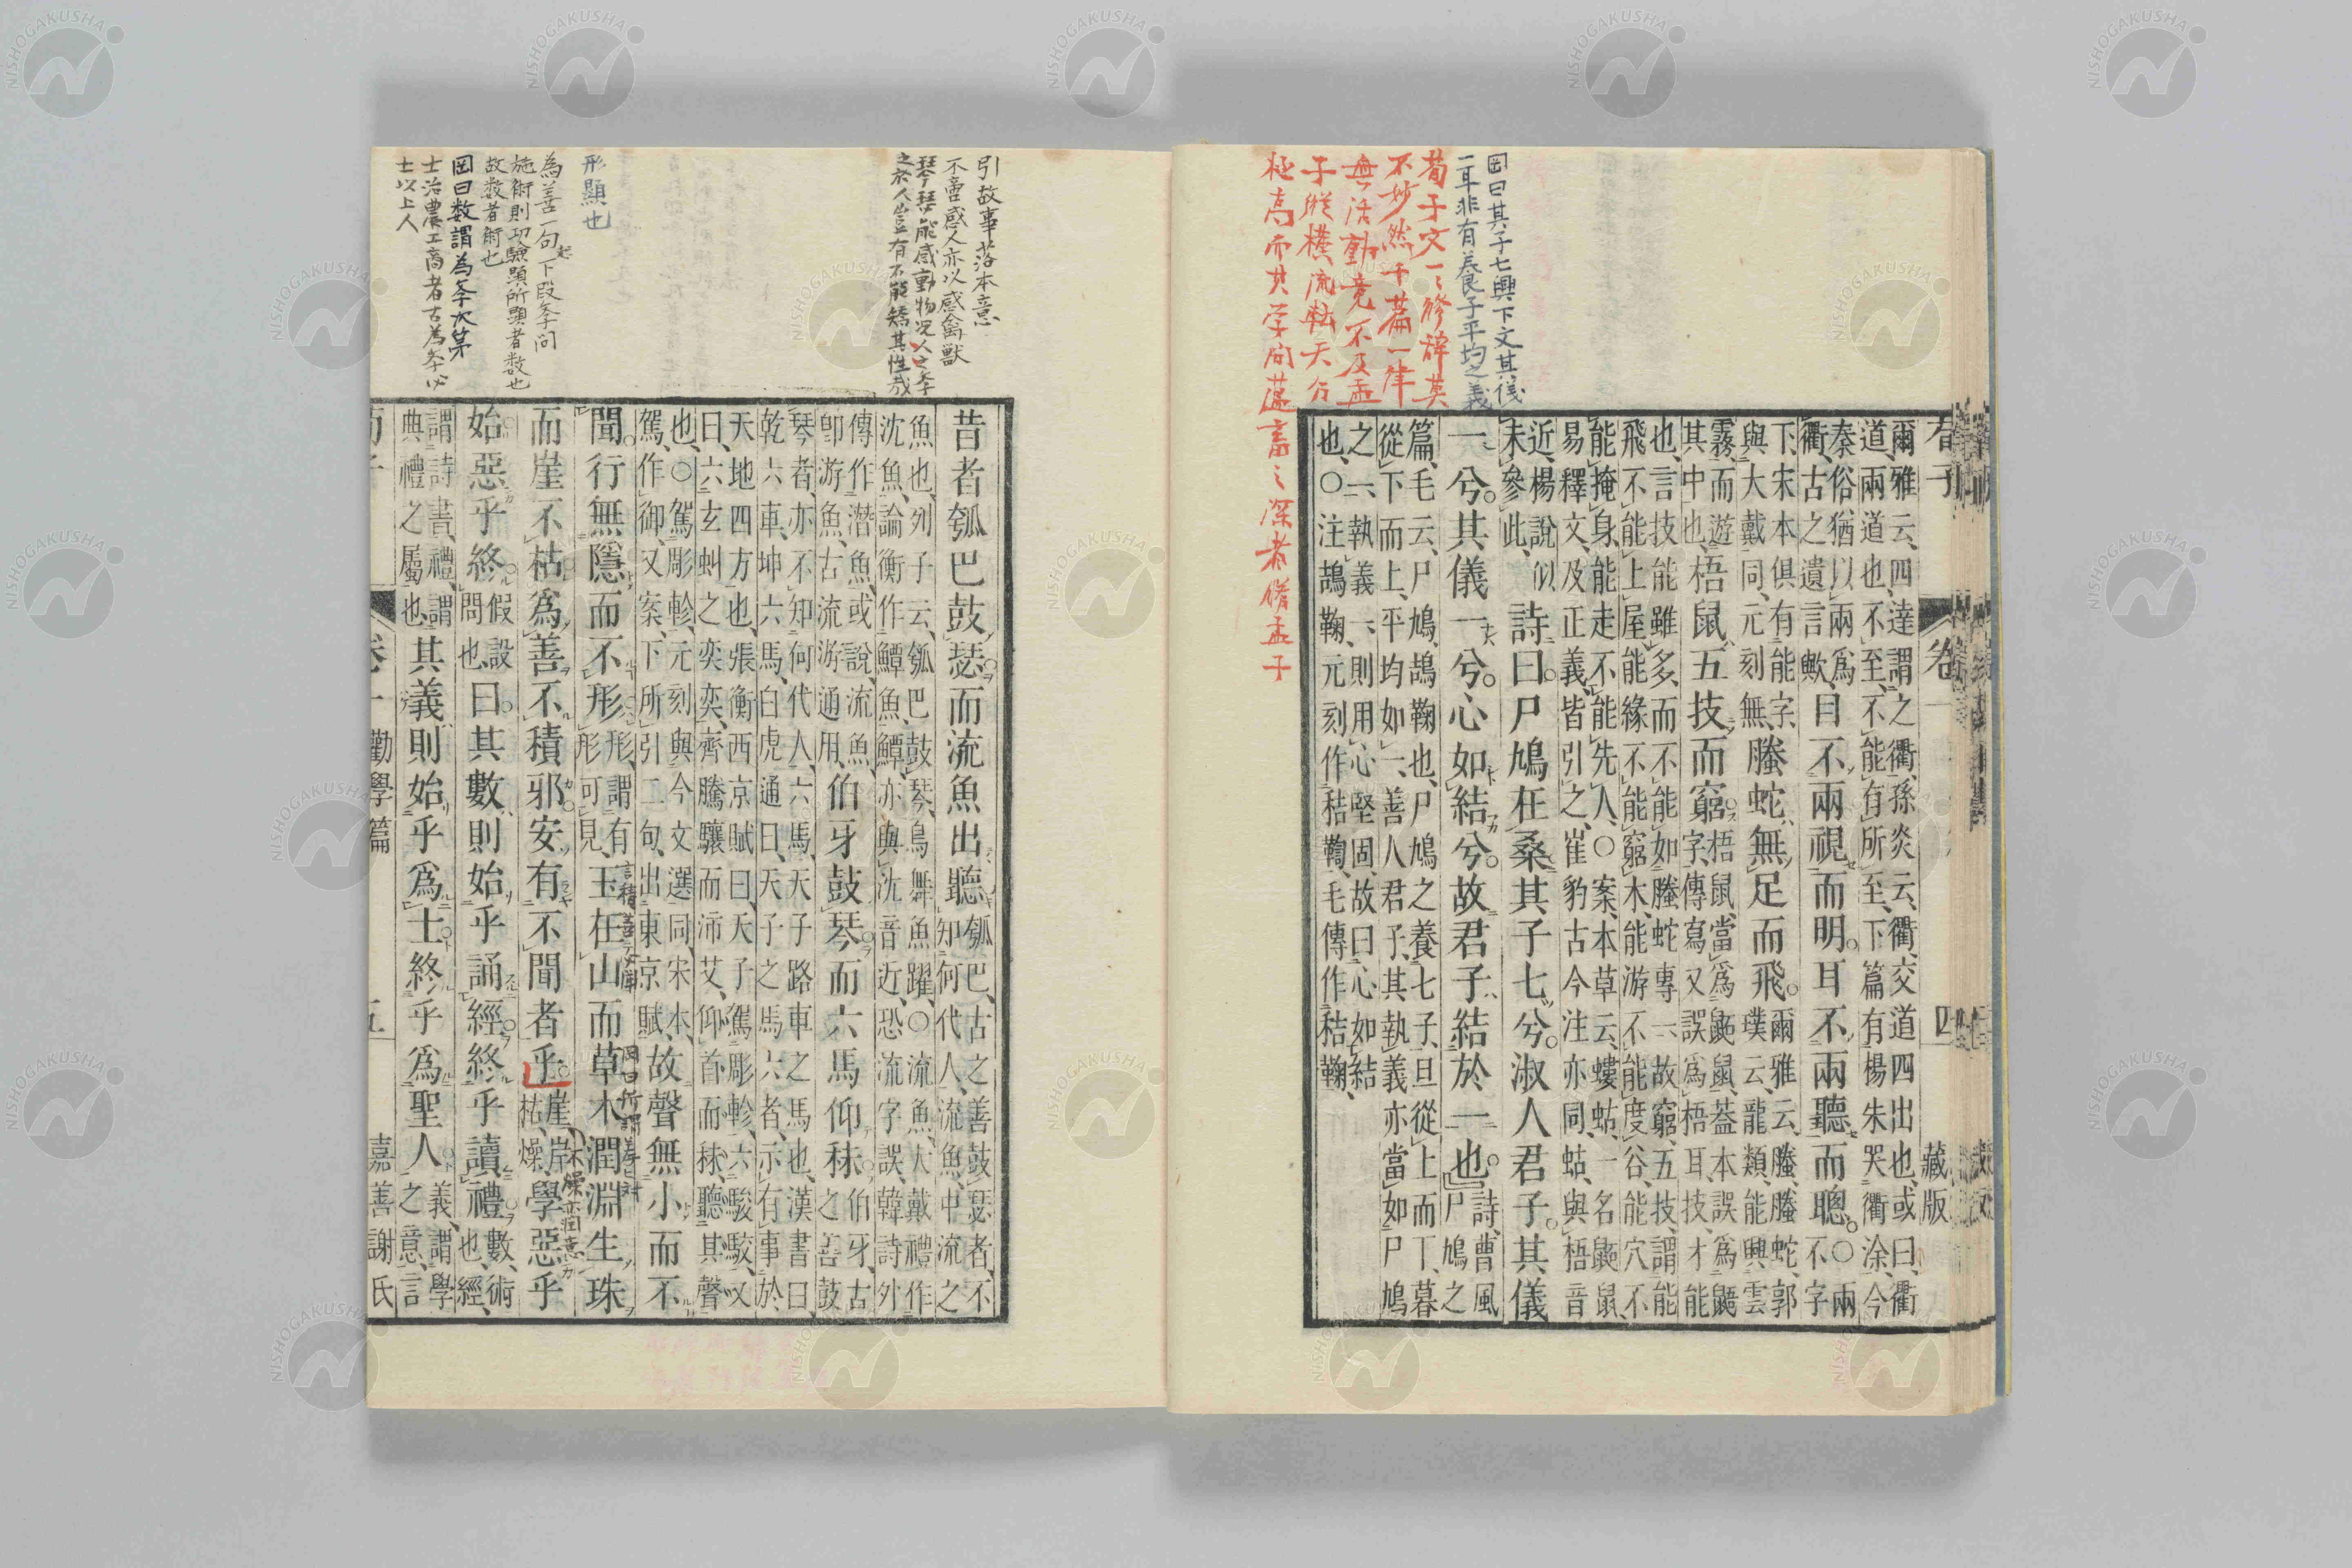 岡曰其子七興下文其儀
一耳非有養子平均之義
荀子文一々修辞莫
不妙然千篇一律
毎活動竟不及孟
子縱橫流転天分
極高而其学問
深者優孟子
卷一
四
藏版
爾雅云、四達謂之衢孫炎云、衢、交道四出也、或曰、衢
道、兩道也、不至、不能有所至、下篇有楊朱哭衢涂、今
秦俗猶以兩爲
衢、古之遺言歟、
目不兩視而明。耳不兩聽而聰。
○兩
不字
下、宋本俱有能字、
與大戴同、元刻無、
螣蛇無足而飛。
爾雅云、螣、螣蛇、郭
璞云、龍類、能興雲
霧而遊
其中也、
梧鼠五技而窮
梧鼠、當爲鼫鼠、葢本誤爲鼯
字、傳寫又誤爲梧耳、技、才能
也、言技能雖多、而不能如螣蛇專一、故窮、五技、謂能
飛不能上屋、能緣不能窮木、能游不能度谷、能穴不
能掩身、能走不能先人、○案本草云、螻蛄、一名鼫鼠
易釋文及正義皆引之、崔豹古今注亦同、蛄、與梧音
近、楊說似
未參此、
詩曰。尸鳩在桑其子七兮。淑人君子。其儀
一兮。其儀一兮。心如結兮。故君子結於一也。
詩、曹風
尸鳩之
篇、毛云、尸鳩、鴶鞠也、尸鳩之養七子、旦從上而下、暮
從下而上、平均如一、善人君子、其執義亦當如尸鳩
之一、執義一、則用心堅固、故曰心如結
也、○注鴶鞠、元刻作秸鞠、毛傳作秸鞠、
引故事落本意
不啻感人亦以感禽獣
琴瑟能感動物况人之本
之於人豈有不能矯其性哉
形顯也
為善一句下段本問
施術則功驗顕所顕者数也
故数者術也
岡曰数謂為本次第
士治農工商者古為本必
士以上人
昔者瓠巴鼓瑟而流魚出聽
瓠巴、古之善鼓瑟者、不
知何代人、流魚、中流之
魚也、列子云、瓠巴鼓琴、鳥舞魚躍、○流魚、大戴禮作
沈魚、論衡作鱏魚、鱏亦與沈音近、恐流字誤、韓詩外
傳作潛魚、或說流魚、
卽游魚、古流游通用、
伯牙鼓琴而六馬仰秣
伯牙、古
之善鼓
琴者、亦不知何代人、六馬、天子路車之馬也、漢書曰、
乾六車、坤六馬、白虎通曰、天子之馬六者、示有事於
天地四方也、張衡西京賦曰、天子駕彫軫、六駿駮、又
曰、六玄虯之奕奕、齊騰驤而沛艾、仰首而秣、聽其聲
也、○駕彫軫、元刻與今文選同、宋本、
駕、作御、又案、下所引二句、出東京賦、
故聲無小而不
聞。行無隱而不形
形、謂有
形可見、
玉在山而草木潤淵生珠
言積善
而崖不枯爲善不積邪。安有不聞者乎。
崖、岸、
枯、燥、
學惡乎
始。惡乎終
假設
問也、
曰。其數則始乎誦經終乎讀禮
數、術
也、經、
謂詩書、禮、謂
典禮之屬也、
其義則始乎爲士終乎爲聖人
義、謂學
之意、言
荀子
卷一 勸學篇
五
嘉善謝氏